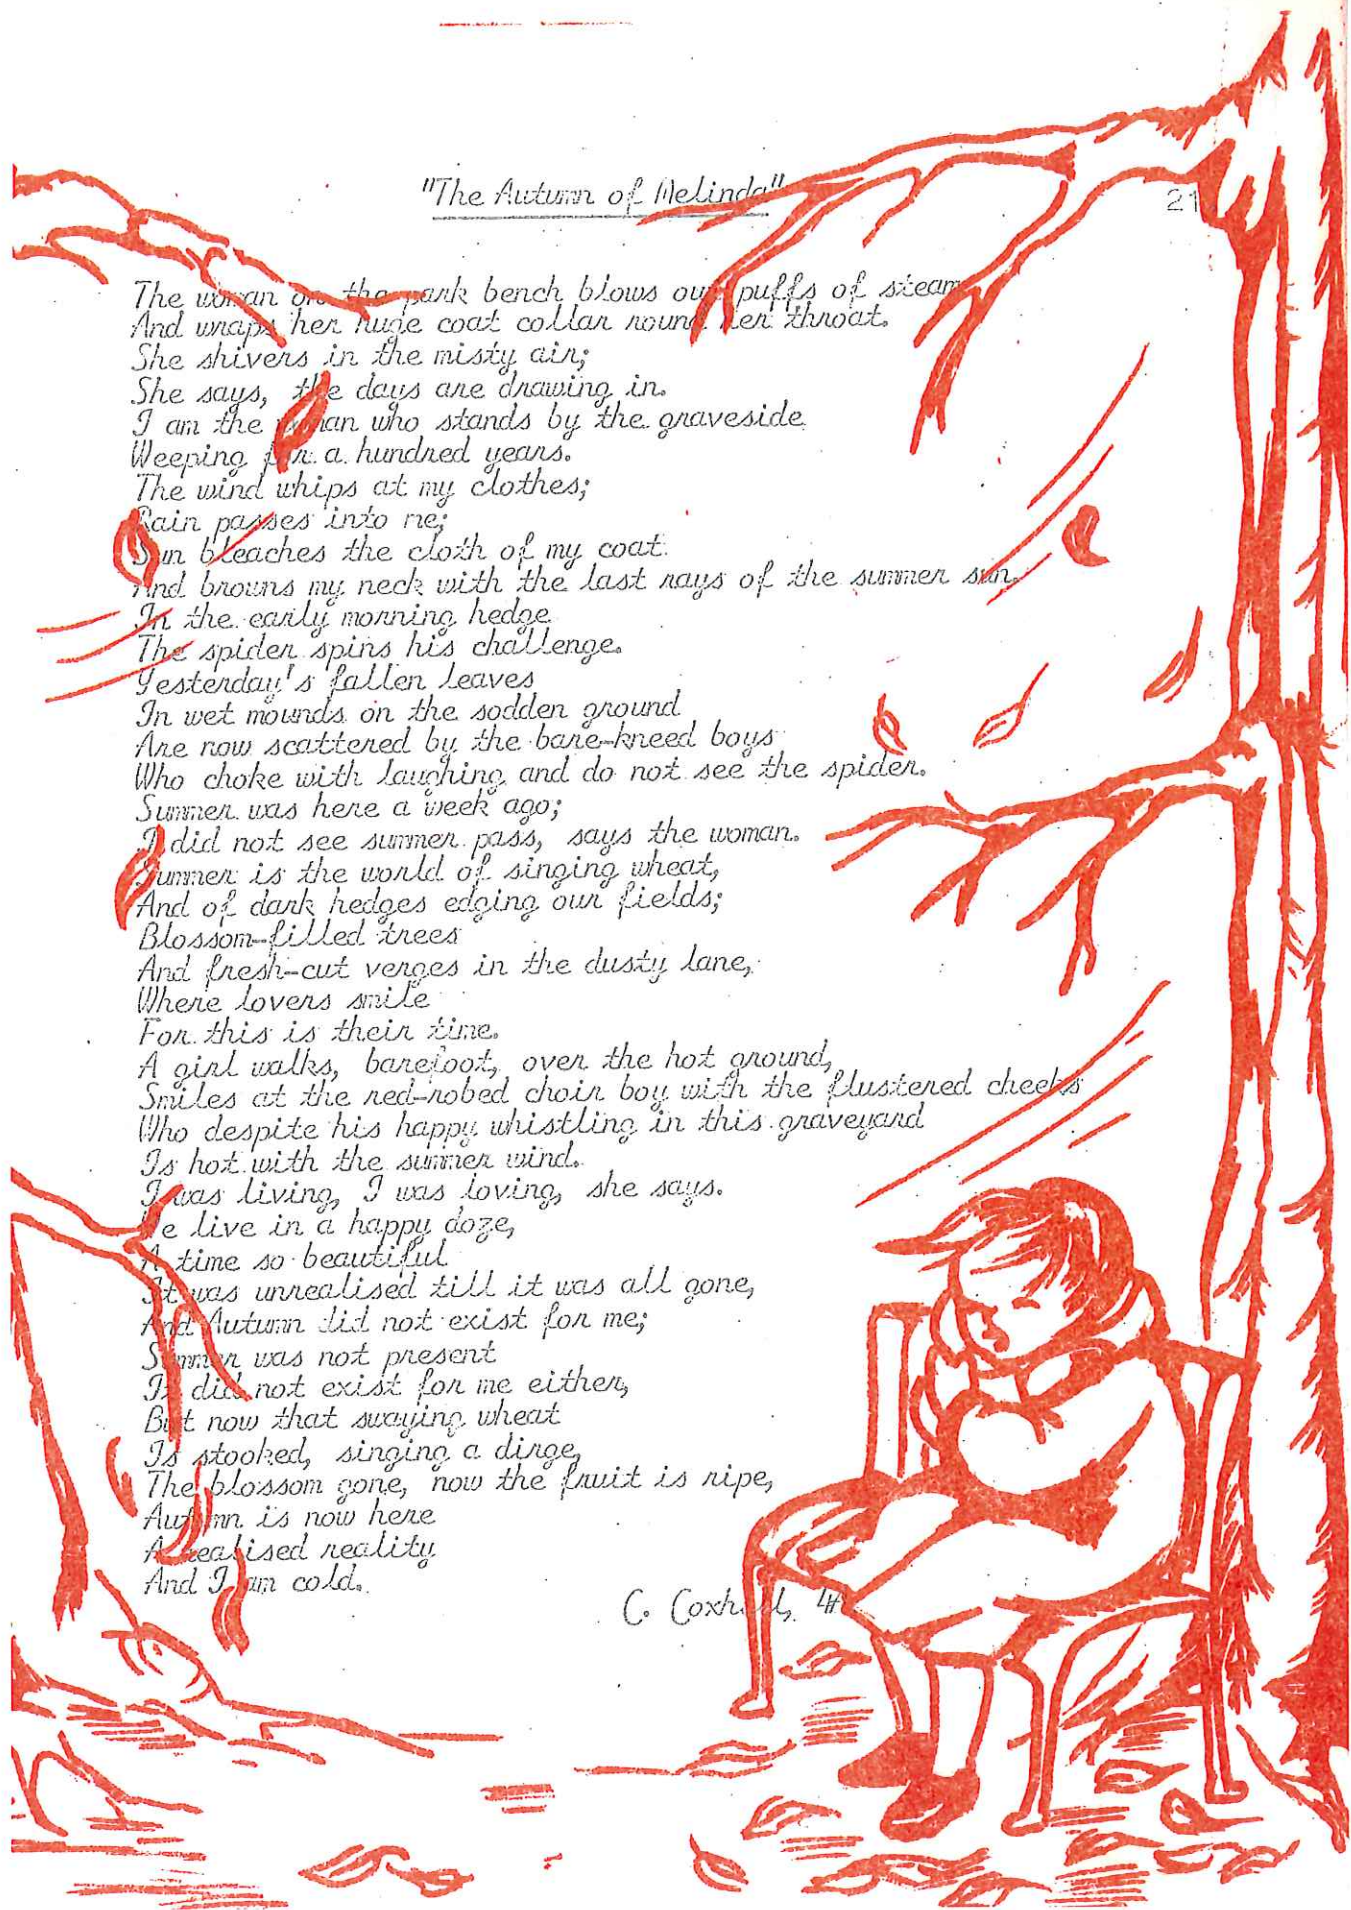 "The Autumn of Melinda"
21
The woman on the park bench blows out puffs of steam
And wraps her huge coat collar round her throat.
She shivers in the misty air;
She says, the days are drawing in.
I am the woman who stands by the graveside
Weeping for a hundred years.
The wind whips at my clothes;
Rain passes into me;
Sun bleaches the cloth of my coat
And browns my neck with the last rays of the summer sun.
In the early morning hedge
The spider spins his challenge.
Yesterday's fallen leaves
In wet mounds on the sodden ground
Are now scattered by the bare-kneed boys
Who choke with laughing and do not see the spider.
Summer was here a week ago;
I did not see summer pass, says the woman.
Summer is the world of singing wheat,
And of dark hedges edging our fields;
Blossom-filled trees
And fresh-cut verges in the dusty lane,
Where lovers smile
For this is their time.
A girl walks, barefoot, over the hot ground,
Smiles at the red-robed choir boy with the flustered cheeks
Who despite his happy whistling in this graveyard
Is hot with the summer wind.
I was living, I was loving, she says.
We live in a happy doze,
A time so beautiful
It was unrealised till it was all gone,
And Autumn did not exist for me;
Summer was not present
It did not exist for me either,
But now that swaying wheat
Is stooked, singing a dirge,
The blossom gone, now the fruit is ripe,
Autumn is now here
A realised reality
And I am cold.
C.